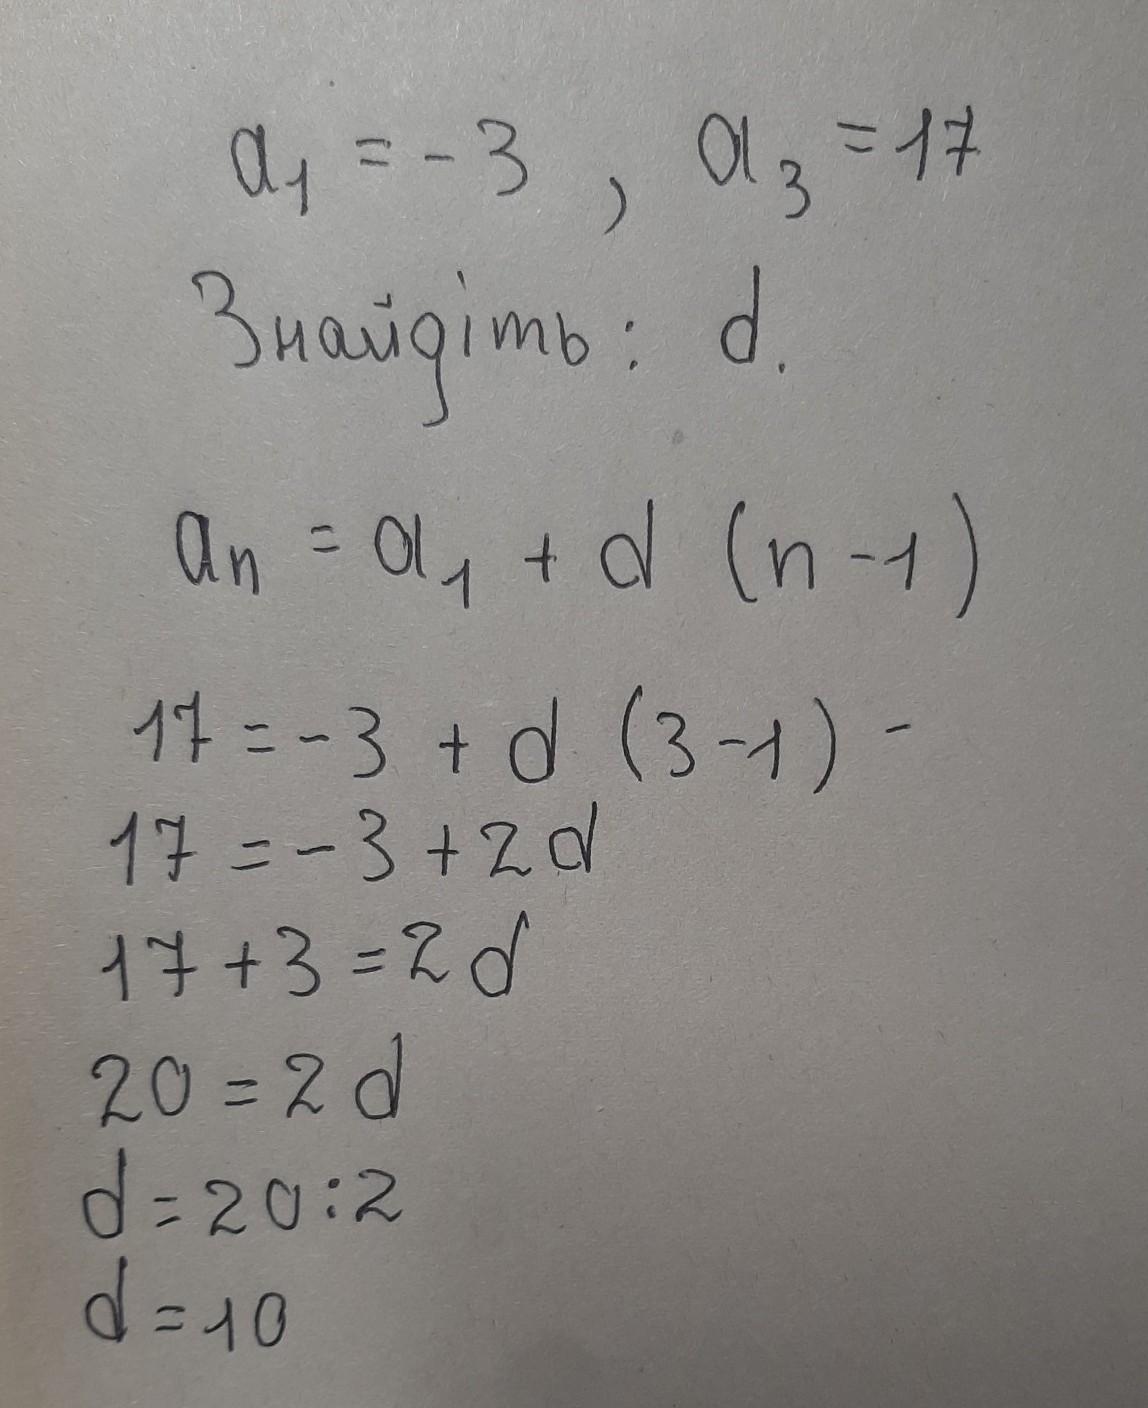 a₁ = -3, a₃ = 17
Знайдіть: d.
aₙ = a₁ + d (n-1)
17 = -3 + d (3-1) -
17 = -3 + 2d
17 + 3 = 2d
20 = 2d
d = 20:2
d = 10